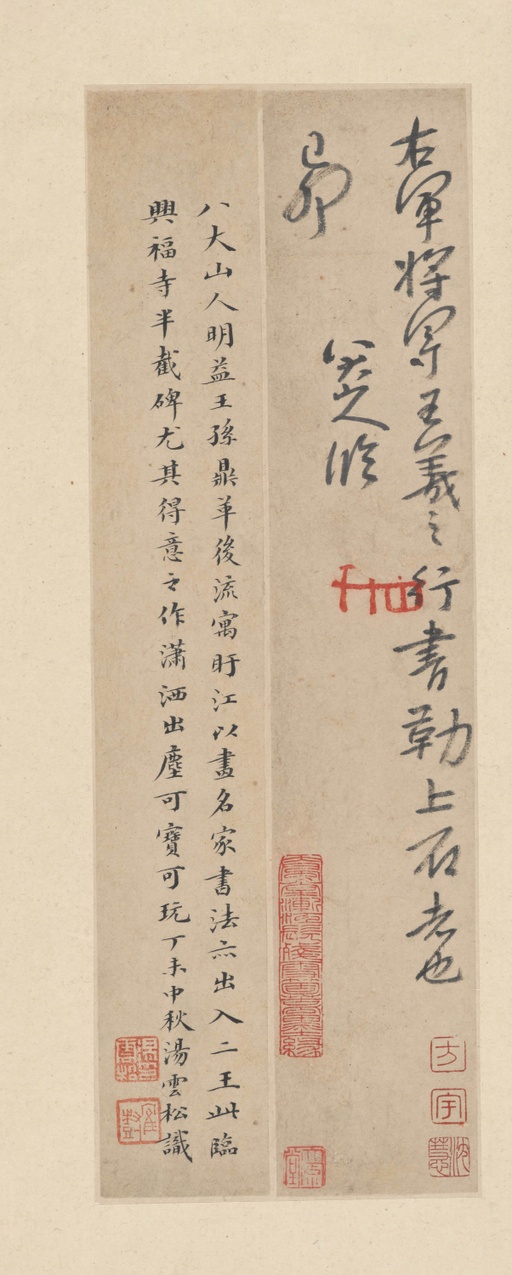 右軍將軍王羲之行書勒上石者也
八大山人臨
己卯
八大山人明益王孫鼎革後流寓盱江以畫名家書法亦出入二王此臨
興福寺半截碑尤其得意之作瀟洒出塵可寶可玩丁未中秋湯雲松識
方
宇
沈慧